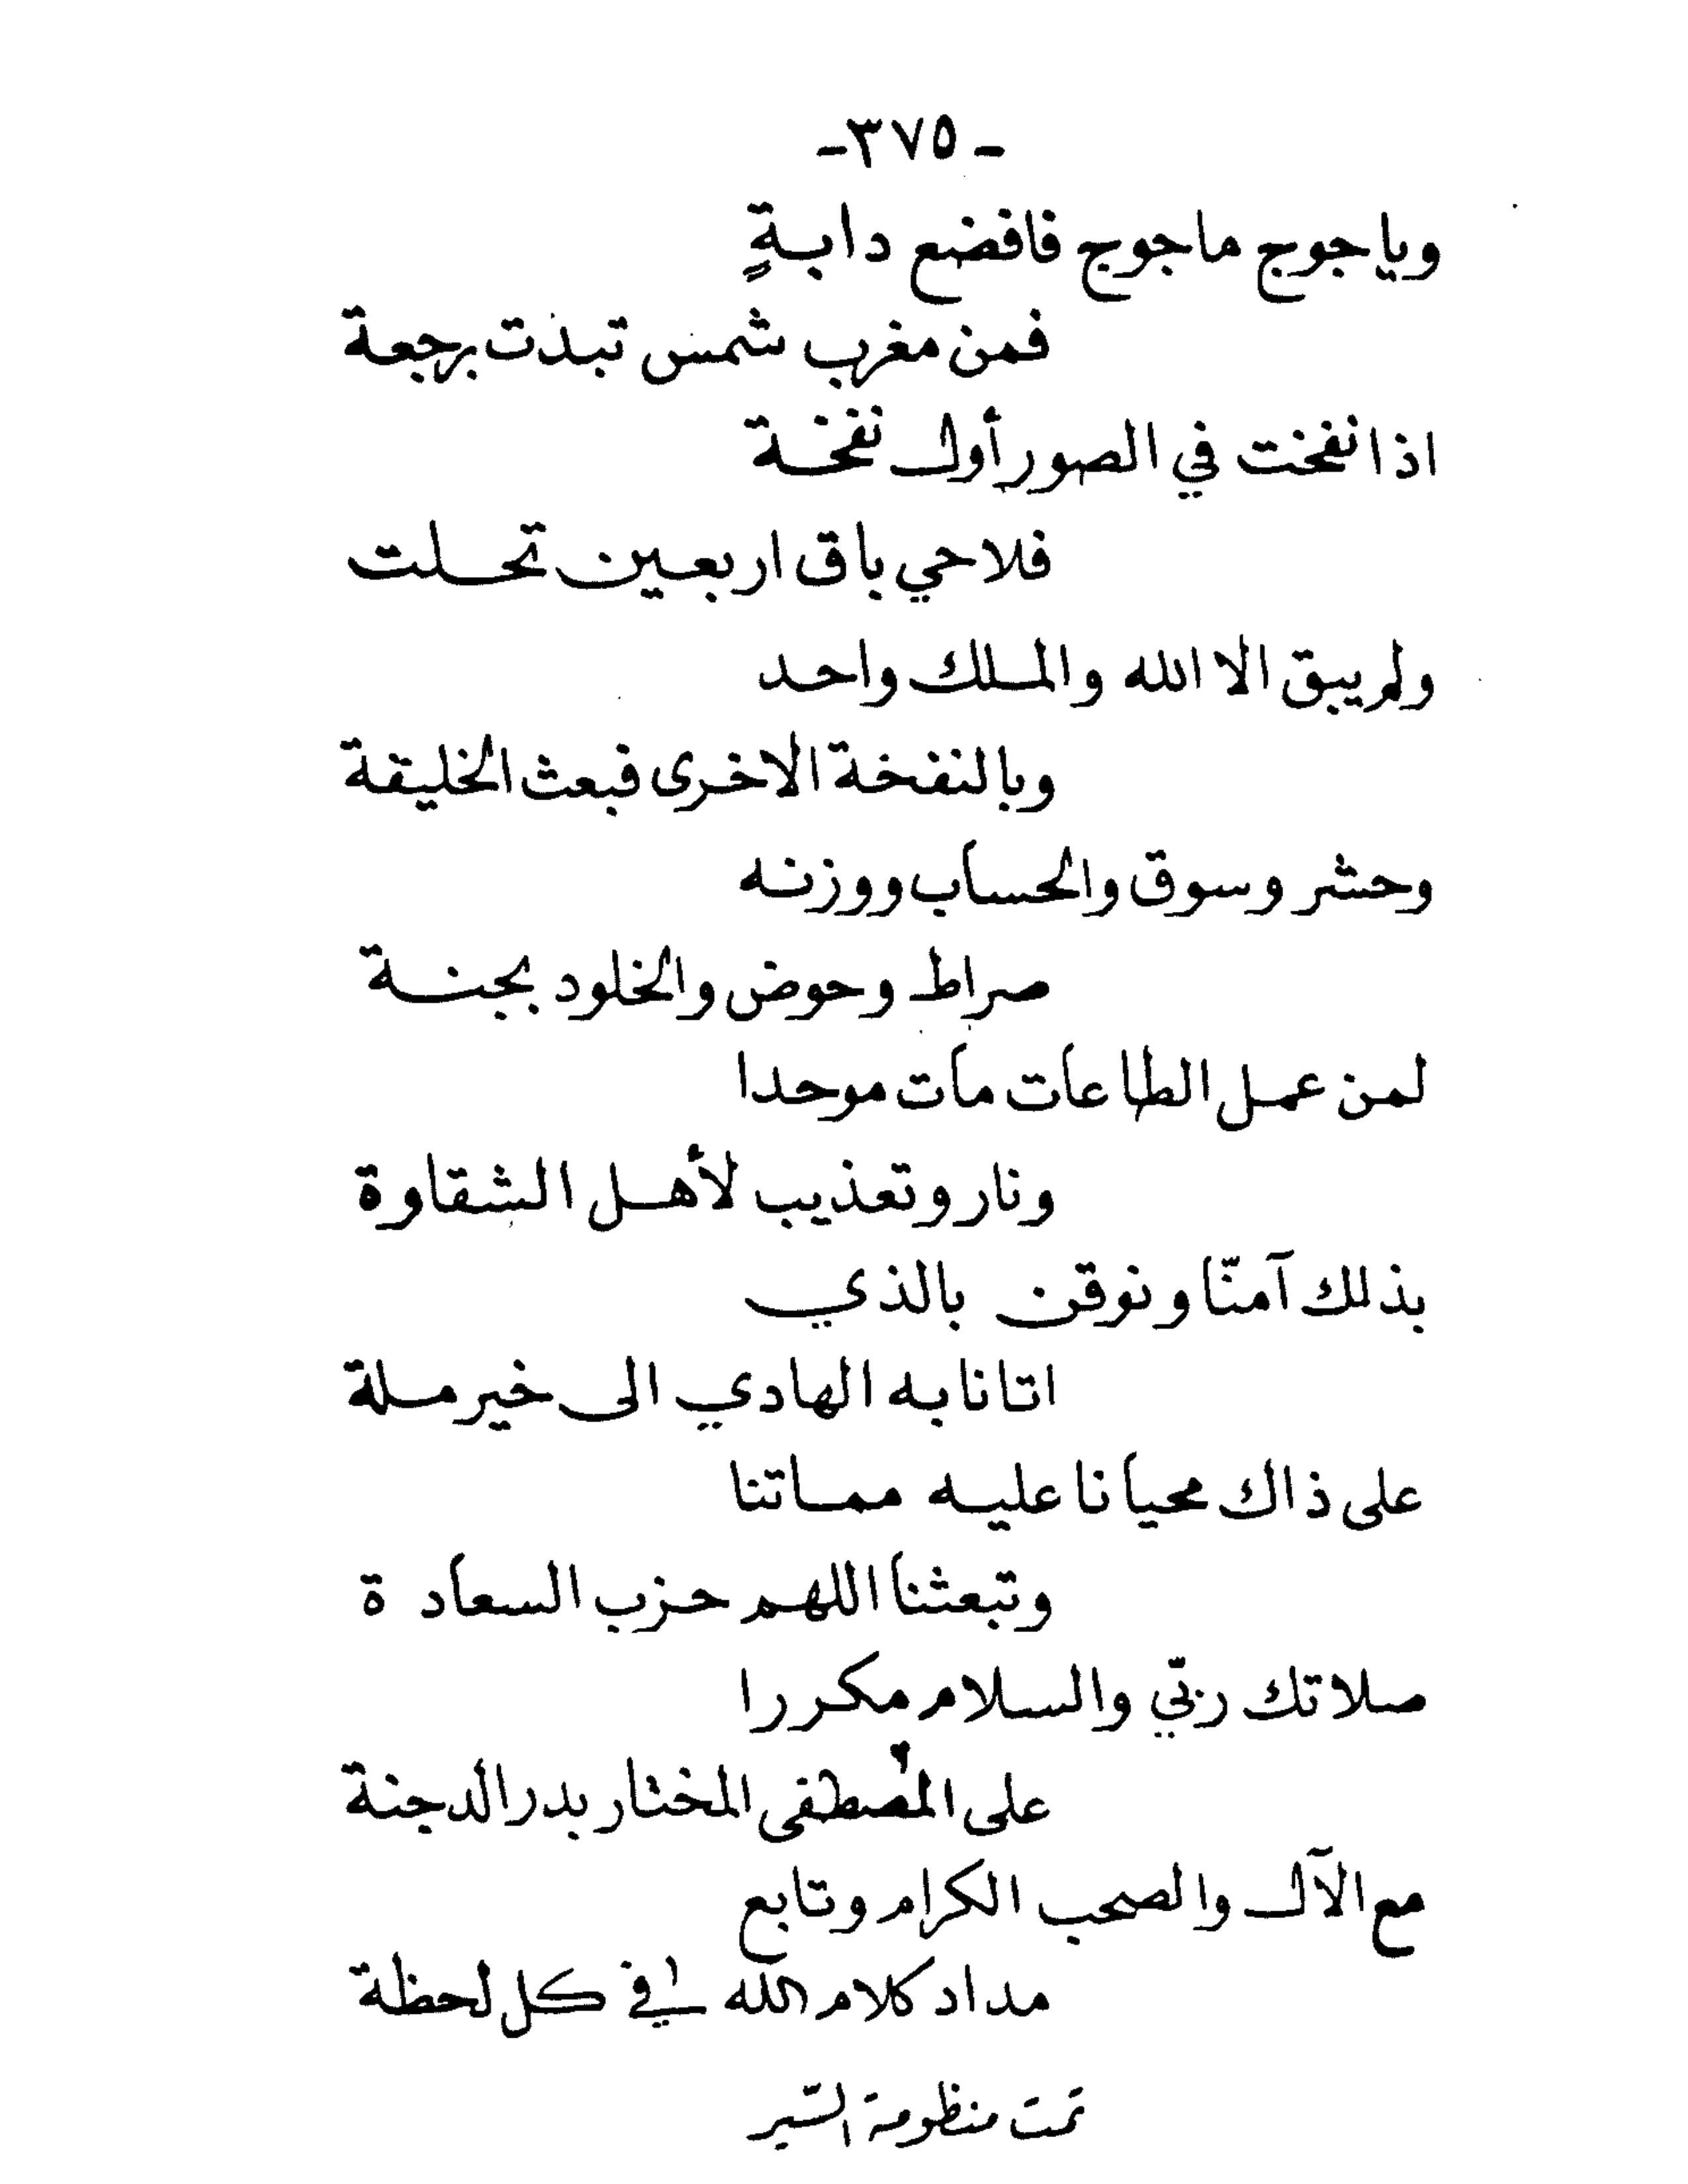 -٣٧٥-
وياجوج ماجوج فافضع دابةٍ
فمن مغرب شمس تبذت برجعة
اذا نفخت في الصور أول نفخة
فلا حي باق اربعين تحلت
ولم يبق الا الله والملك واحد
وبالنفخة الاخرى فبعث الخليقة
وحشر وسوق والحساب ووزنه
صراط وحوض والخلود بجنة
لمن عمل الطاعات مات موحدا
ونار وتعذيب لأهل الشقاوة
بذلك آمنّا ونوقن بالذي
اتانا به الهادي الى خير ملة
على ذاك محيانا عليه مماتنا
وتبعثنا اللهم حزب السعادة
صلاتك ربّي والسلام مكررا
على المصطفى المختار بدر الدجنة
مع الآل والصحب الكرام وتابع
مداد كلام الله في كل لحظة
تمت منظومة السّير